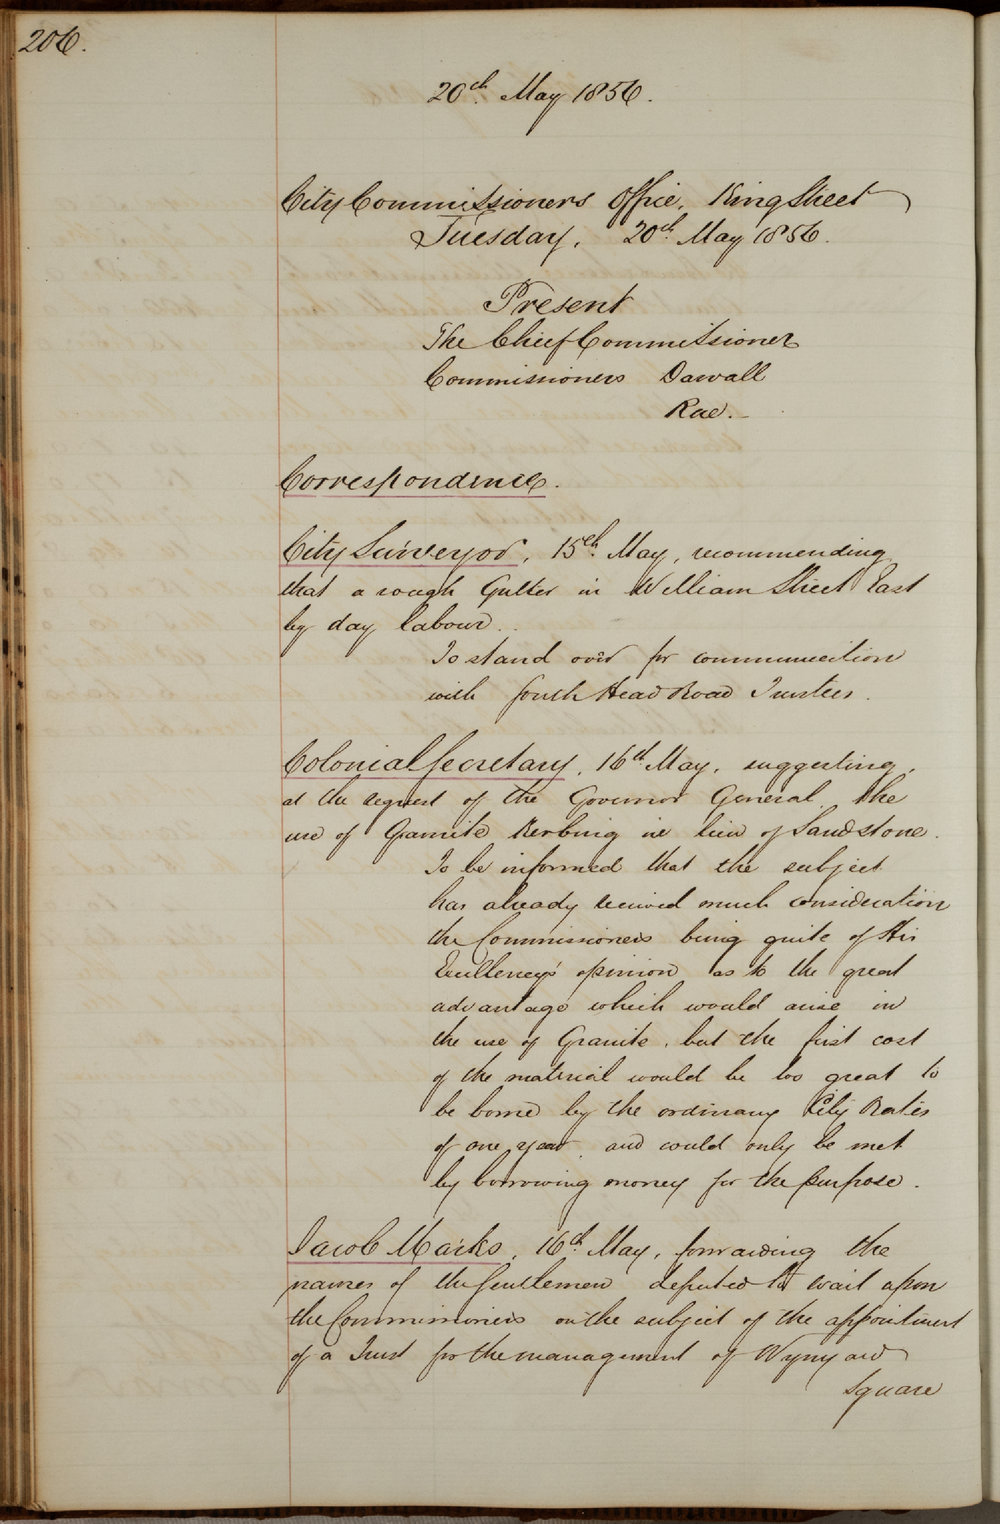 206.
20th May 1856.
City Commissioners Office, King Street
Tuesday, 20th May 1856.
Present
The Chief Commissioner
Commissioners Darvall
Rae.
Correspondence.
City Surveyor, 15th May, recommending
that a rough Gutter in William Street East
by day labour.
To stand over for communication
with South Head Road Trustees.
Colonial Secretary, 16th May, suggesting,
at the request of the Governor General the
use of Granite Kerbing in lieu of Sandstone.
To be informed that the subject
has already received much consideration
the Commissioners being quite of His
Excellency's opinion as to the great
advantage which would arise in
the use of Granite, but the first cost
of the material would be too great to
be borne by the ordinary City Rates
of one year, and could only be met
by borrowing money for the purpose.
Jacob Marks, 16th May, forwarding the
names of the Gentlemen deputed to wait upon
the Commissioners on the subject of the appointment
of a Trust for the management of Wynyard
Square